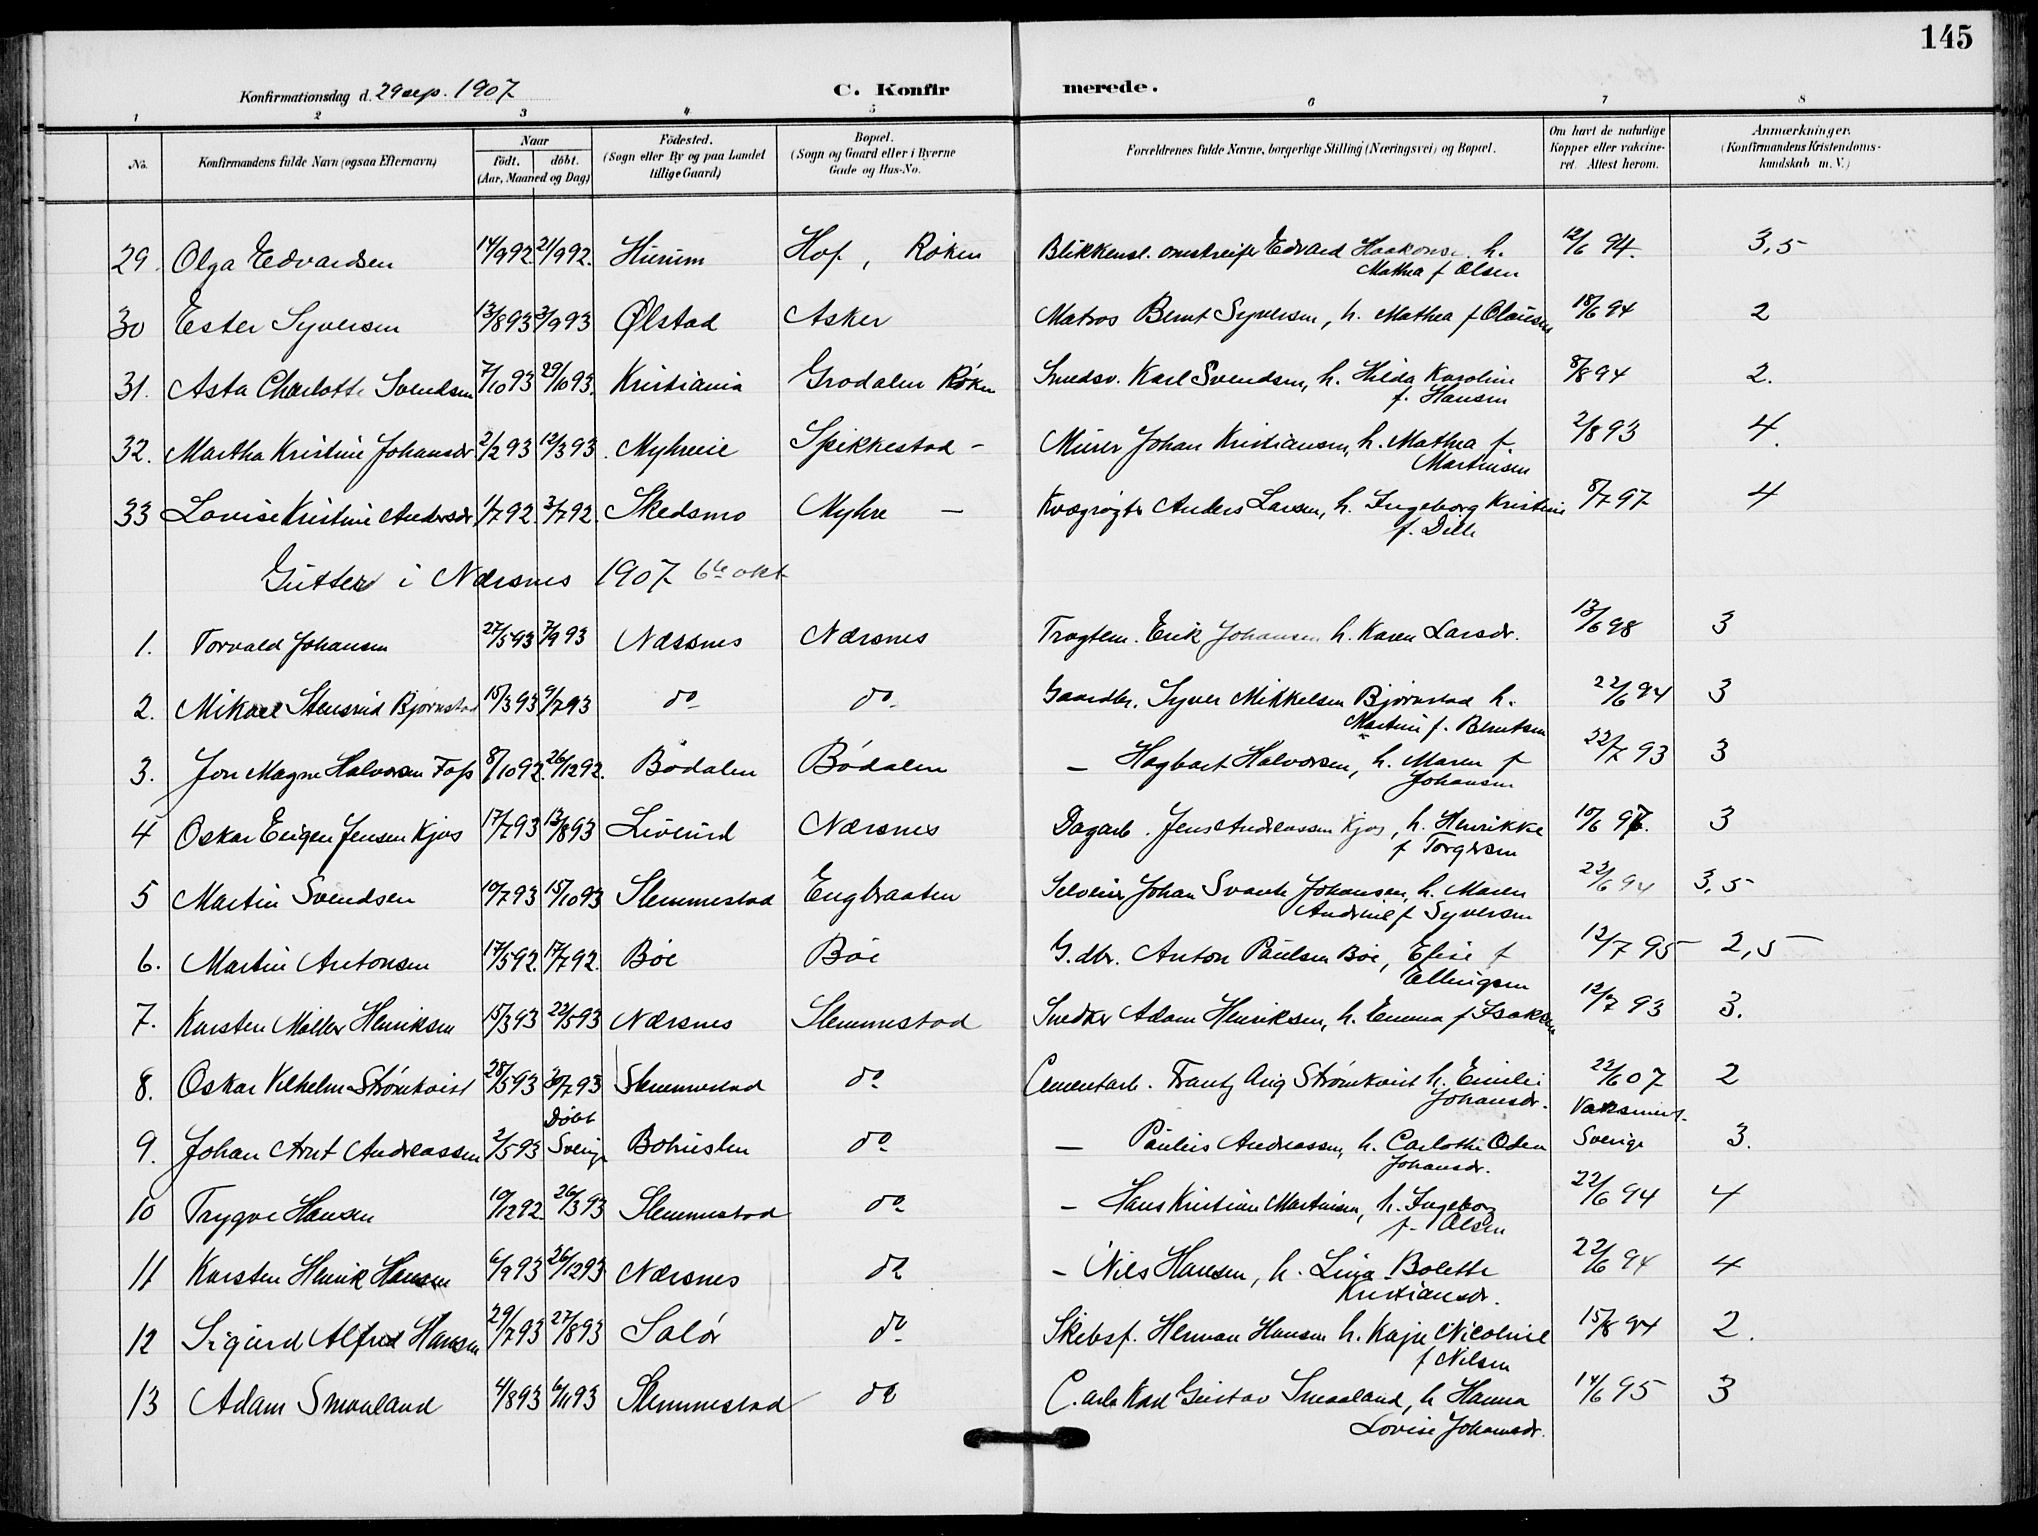 145
Konfirmationsdag d. 29 sep. 1907
C. Konfirmerede.
1 2 3 4 5 6 7 8
No.
Konfirmandens fulde Navn (ogsaa Efternavn)
Naar født. døbt. (Aar, Maaned og Dag)
Födested. (Sogn eller By og paa Landet tillige Gaard)
Bopæl. (Sogn og Gaard eller i Byerne Gade og Hus-No.
Forældrenes fulde Navne, borgerlige Stilling (Næringsvei) og Bopæl.
Om havt de naturlige Kopper eller vakcineret. Attest herom.
Anmærkninger. (Konfirmandens Kristendomskundskab m. V.)
29. Olga Edvardsen 14/9 92 21/9 92. Hurum Hof, Røken Blikkensl. omstreifer Edvard Haakonsen h. 12/6 94. 3,5
Mathea f Olsen
30 Ester Syversen 13/8 93 3/9 93 Ølstad Asker Matros Bernt Syversen, h. Mathea f Olausen 18/6 94 2
31. Asta Charlotte Svendsen 7/10 93 29/10 93. Kristiania Grodalen Røken Smedsv. Karl Svendsen, h. Hilda Karoline 8/8 94 2.
f. Hansen
32. Martha Kristine Johansdr 2/2 93 12/3 93. Myhreie Spikkestad - Murer Johan Kristiansen, h. Mathea f 2/8 93 4.
Martinsen
33 Lovise Kristine Andersdr 1/7 92. 3/7 92. Skedsmo Myhre - Kvægrøgter Anders Larsen, h. Ingeborg Kristine 8/7 97 4
f. Dille
Gutter i Nærsnes 1907 6te okt
1. Torvald Johansen 27/5 93 7/9 93 Næssnes Nærsnes Tragtem. Erik Johansen h. Karen Larsdr. 13/6 98 3
2. Mikael Stensrud Bjørnstad 15/3 93 9/7 93 do do Gaardbr. Syver Mikkelsen Bjørnstad h. 22/6 94 3
Martine f. Berntsen
3. Jon Magne Halvorsen Foss 8/10 92. 26/12 92. Bödalen Bödalen - Hagbart Halvorsen, h. Maren f 22/7 93 3
Johansen
4 Oskar Eugen Jensen Kjos 17/7 93 13/8 93 Liverud Nærsnes Dagarb. Jens Andreassen Kjos, h. Henrikke 10/6 97. 3
f Torgersen
5 Martin Svendsen 10/7 93 15/10 93 Slemmestad Engbraaten Selveier Johan Svante Johansen, h. Maren 22/6 94 3,5
Andrine f Syversen
6. Martin Antonsen 17/5 92. 17/7 92. Böe Böe G.dbr. Anton Paulsen Böe, Elise f 12/7 95 2,5
Ellingsen
7. Karsten Möller Henriksen 15/3 93 22/5 93 Nærsnes Slemmestad Snedker Adam Henriksen, h. Emma f Isaksen 12/7 93 3.
8. Oskar Vilhelm Strömkvist 28/5 93 30/7 93 Slemmestad do Cementarb. Frantz Aug Strömkvist h. Emilie 22/6 07 2
Johansdr.
9. Johan Arnt Andreassen 2/5 93 Döbt Sverige Bohuslen do - Paulius Andreassen, h. Carlotte Oden Vaksinert. Sverige 3.
Johansdr.
10 Trygve Hansen 10/12 92. 26/3 93 Slemmestad do - Hans Kristian Martinsen, h. Ingeborg 22/6 94 4
f. Olsen
11 Karsten Henrik Hansen 6/9 93 26/12 93 Nærsnes do - Nils Hansen, h. Lina Bolette 22/6 94 4
Kristiansdr.
12 Sigurd Alfred Hansen 29/7 93 27/8 93 Solör do Skibsf. Herman Hansen h. Kaja Nicoline 15/8 94 2.
f Nilsen
13 Adam Smaaland 4/8 93 6/11 93 Slemmestad do C. arb Karl Gustav Smaaland, h Hanna 14/6 95 3
Lovise Johansdr.